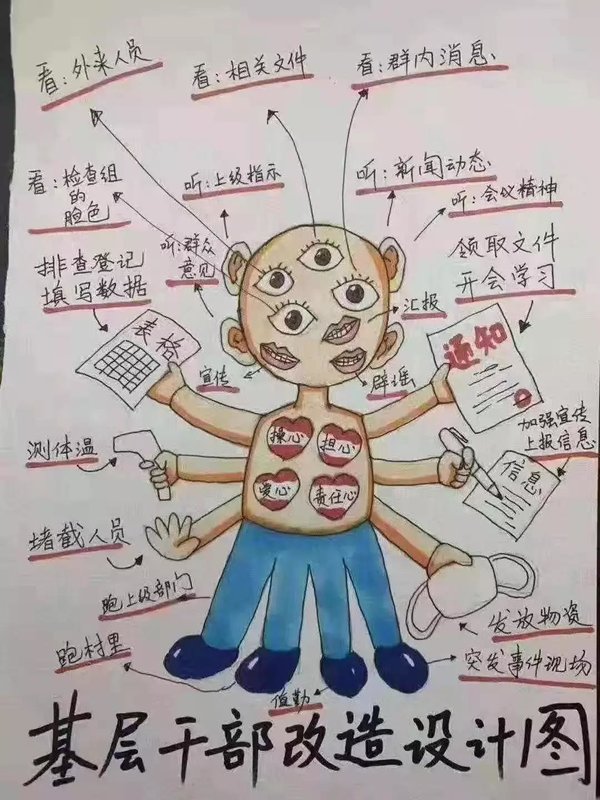 看:外来人员
看:相关文件
看:群内消息
看:检查组
的
脸色
听:上级指示
听:新闻动态
听:会议精神
听:群众
意见
排查登记
填写数据
领取文件
开会学习
汇报
表格
通知
宣传
辟谣
加强宣传
上报信息
操心
担心
测体温
信息
爱心
责任心
堵截人员
跑上级部门
发放物资
跑村里
突发事件现场
值勤
基层干部改造设计图